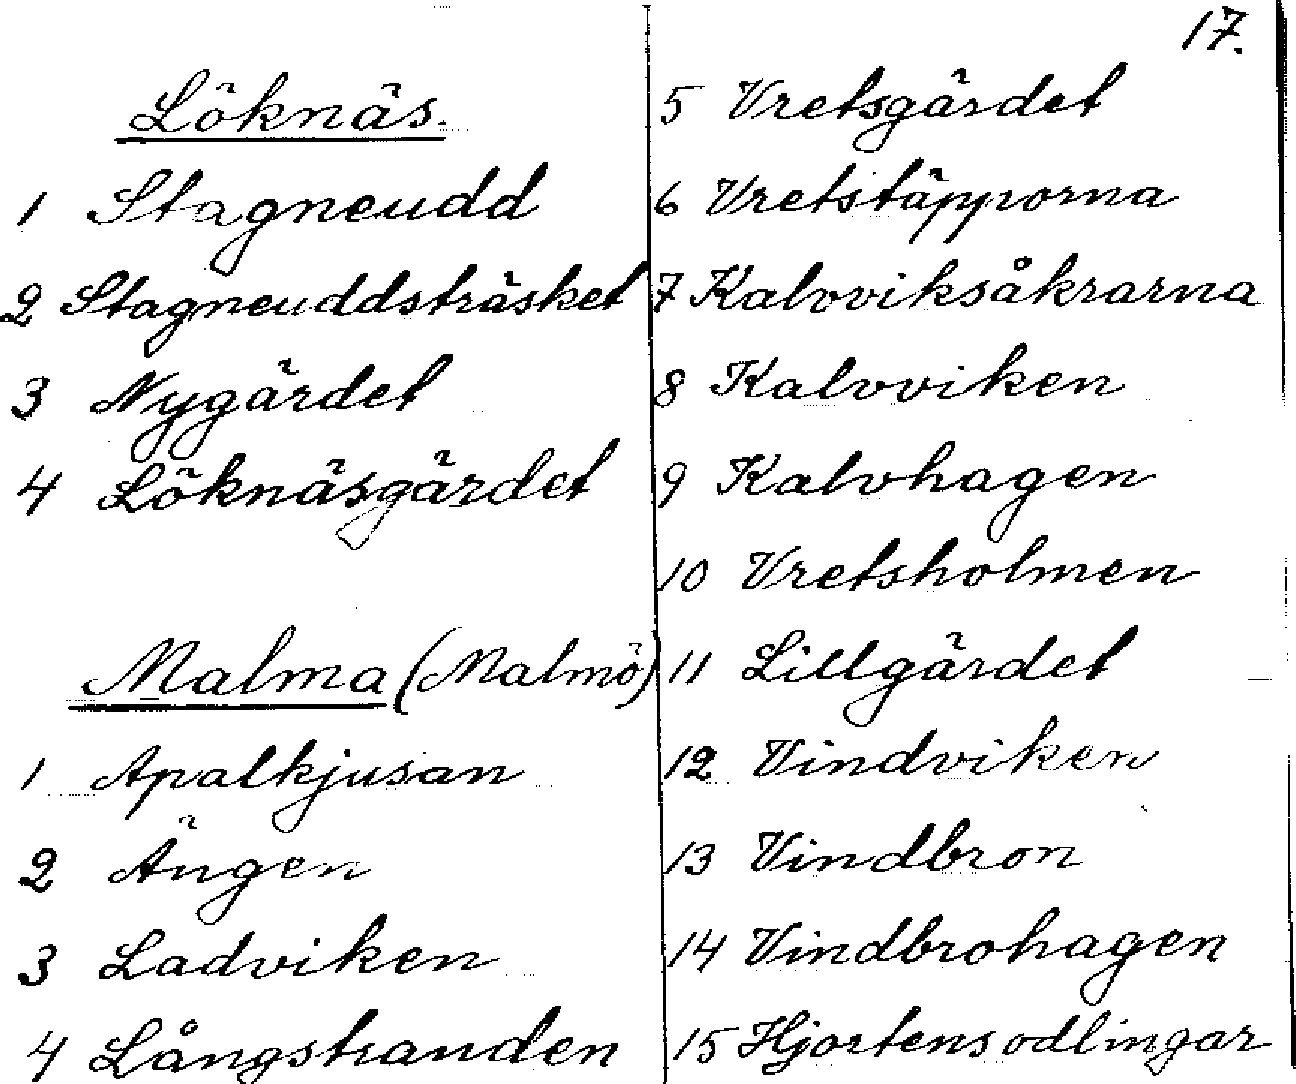 17.
Löknäs.
1 Stagneudd
2 Stagneuddsträsket
3 Nygärdet
4 Löknäsgärdet
Malma (Malmö)
1 Apalkjusan
2 Ängen
3 Ladviken
4 Långstranden
5 Vretsgärdet
6 Vretstäpporna
7 Kalvviksåkrarna
8 Kalvviken
9 Kalvhagen
10 Vretsholmen
11 Lillgärdet
12 Vindviken
13 Vindbron
14 Vindbrohagen
15 Hjortens odlingar